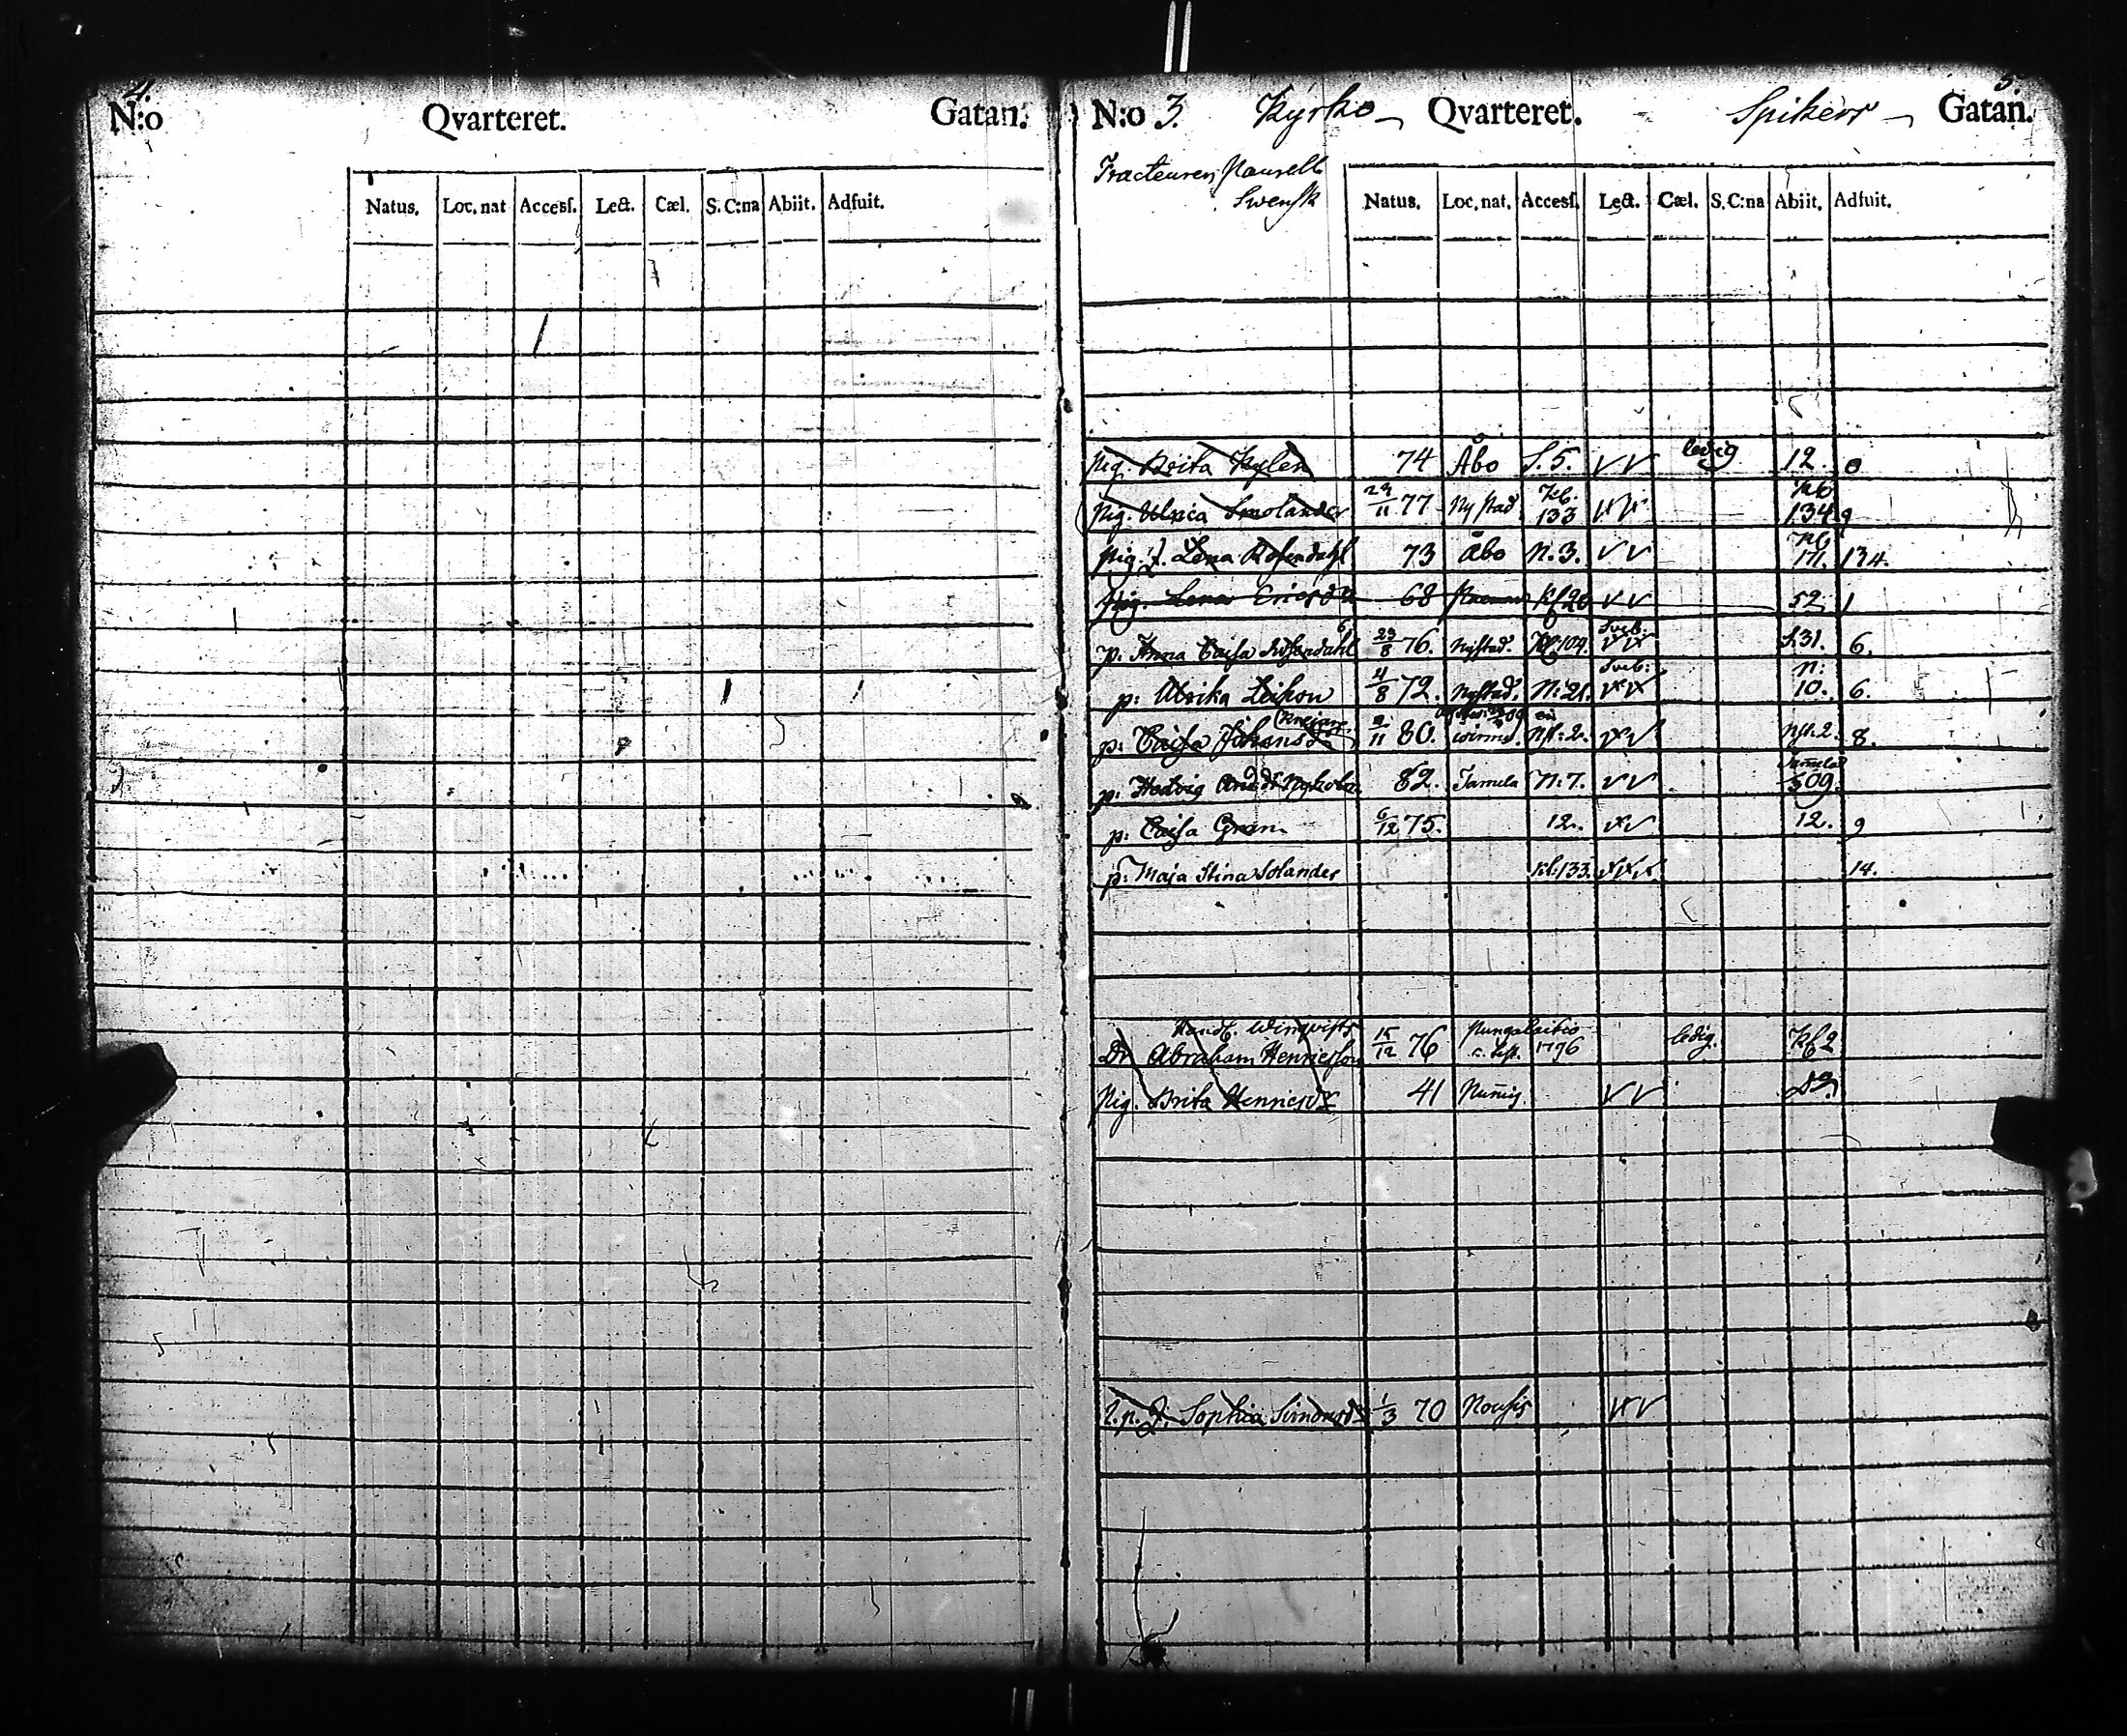 4.
N:o Qvarteret. Gatan.
Natus. Loc. nat Accesſ. Lect. Cæl. S. C:na Abiit. Adfuit.
5.
N:o 3. Kyrko- Qvarteret. Spikers- Gatan.
Tracteuren
Swensk
Natus. Loc. nat. Accesſ. Lect. Cæl. S. C:na Abiit. Adfuit.
Pig. Brita Kylen 74 Åbo S. 5. ledig 12. 0
Pig. Ulrica Smolander 29/11 77 Nystad Kb. 133 134. 9
Pig. J. Lena Rosendahl 73 Åbo N. 3. 171. 134.
Pig. Lena Ericsdr 68 Kl 20 52 1
p: Anna Caisa Rosendahl 23/8 76. Nystad. 104. Sveb. S. 31. 6.
p: Ulrika 4/8 72. Nystad. N: 21. Sveb: n: 10. 6.
p: Caisa Johansdr 80. Nst. 2. Nst. 2. 8.
p: Hedvig 82. Tamela N: 7. Tamela 809.
p: Caisa Gran 6/12 75. 12. 12. 9
p: Maja Stina Solander Kl: 133. 14.
Handl. Winqvists
Dr. Abraham Henricsson 15/12 76 1796 ledig. Kl 2
Pig. Brita Henricsdr 41
Sophia Simonsdr 1/3 70 Nousis